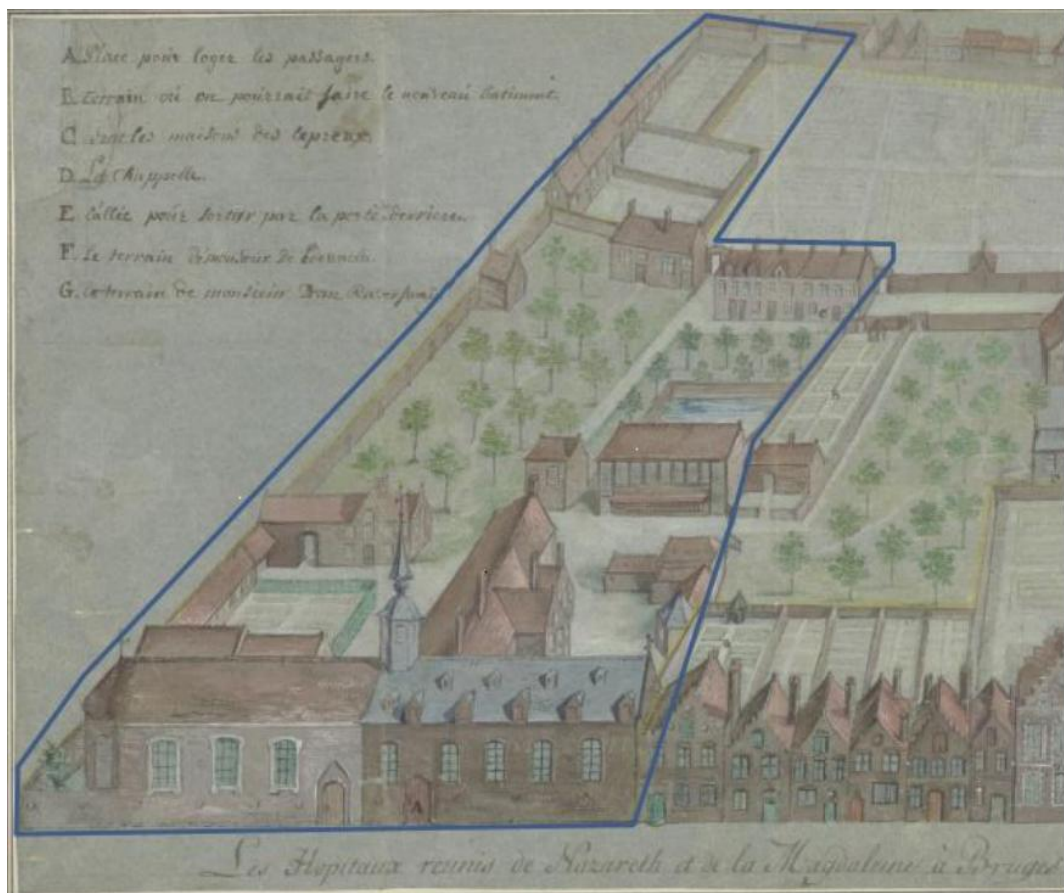 A. Place pour loger les passagers.
B. terrain où on pourrait faire le nouveau batiment.
C. les maisons des lepreux.
D. La Chappelle.
E. l'allée pour sortir par la porte derriere.
F. Le terrain de
G. le terrain de monsieur Van
A
Les Hopitaux reunis de Nazareth et de la Magdaleine à Bruges